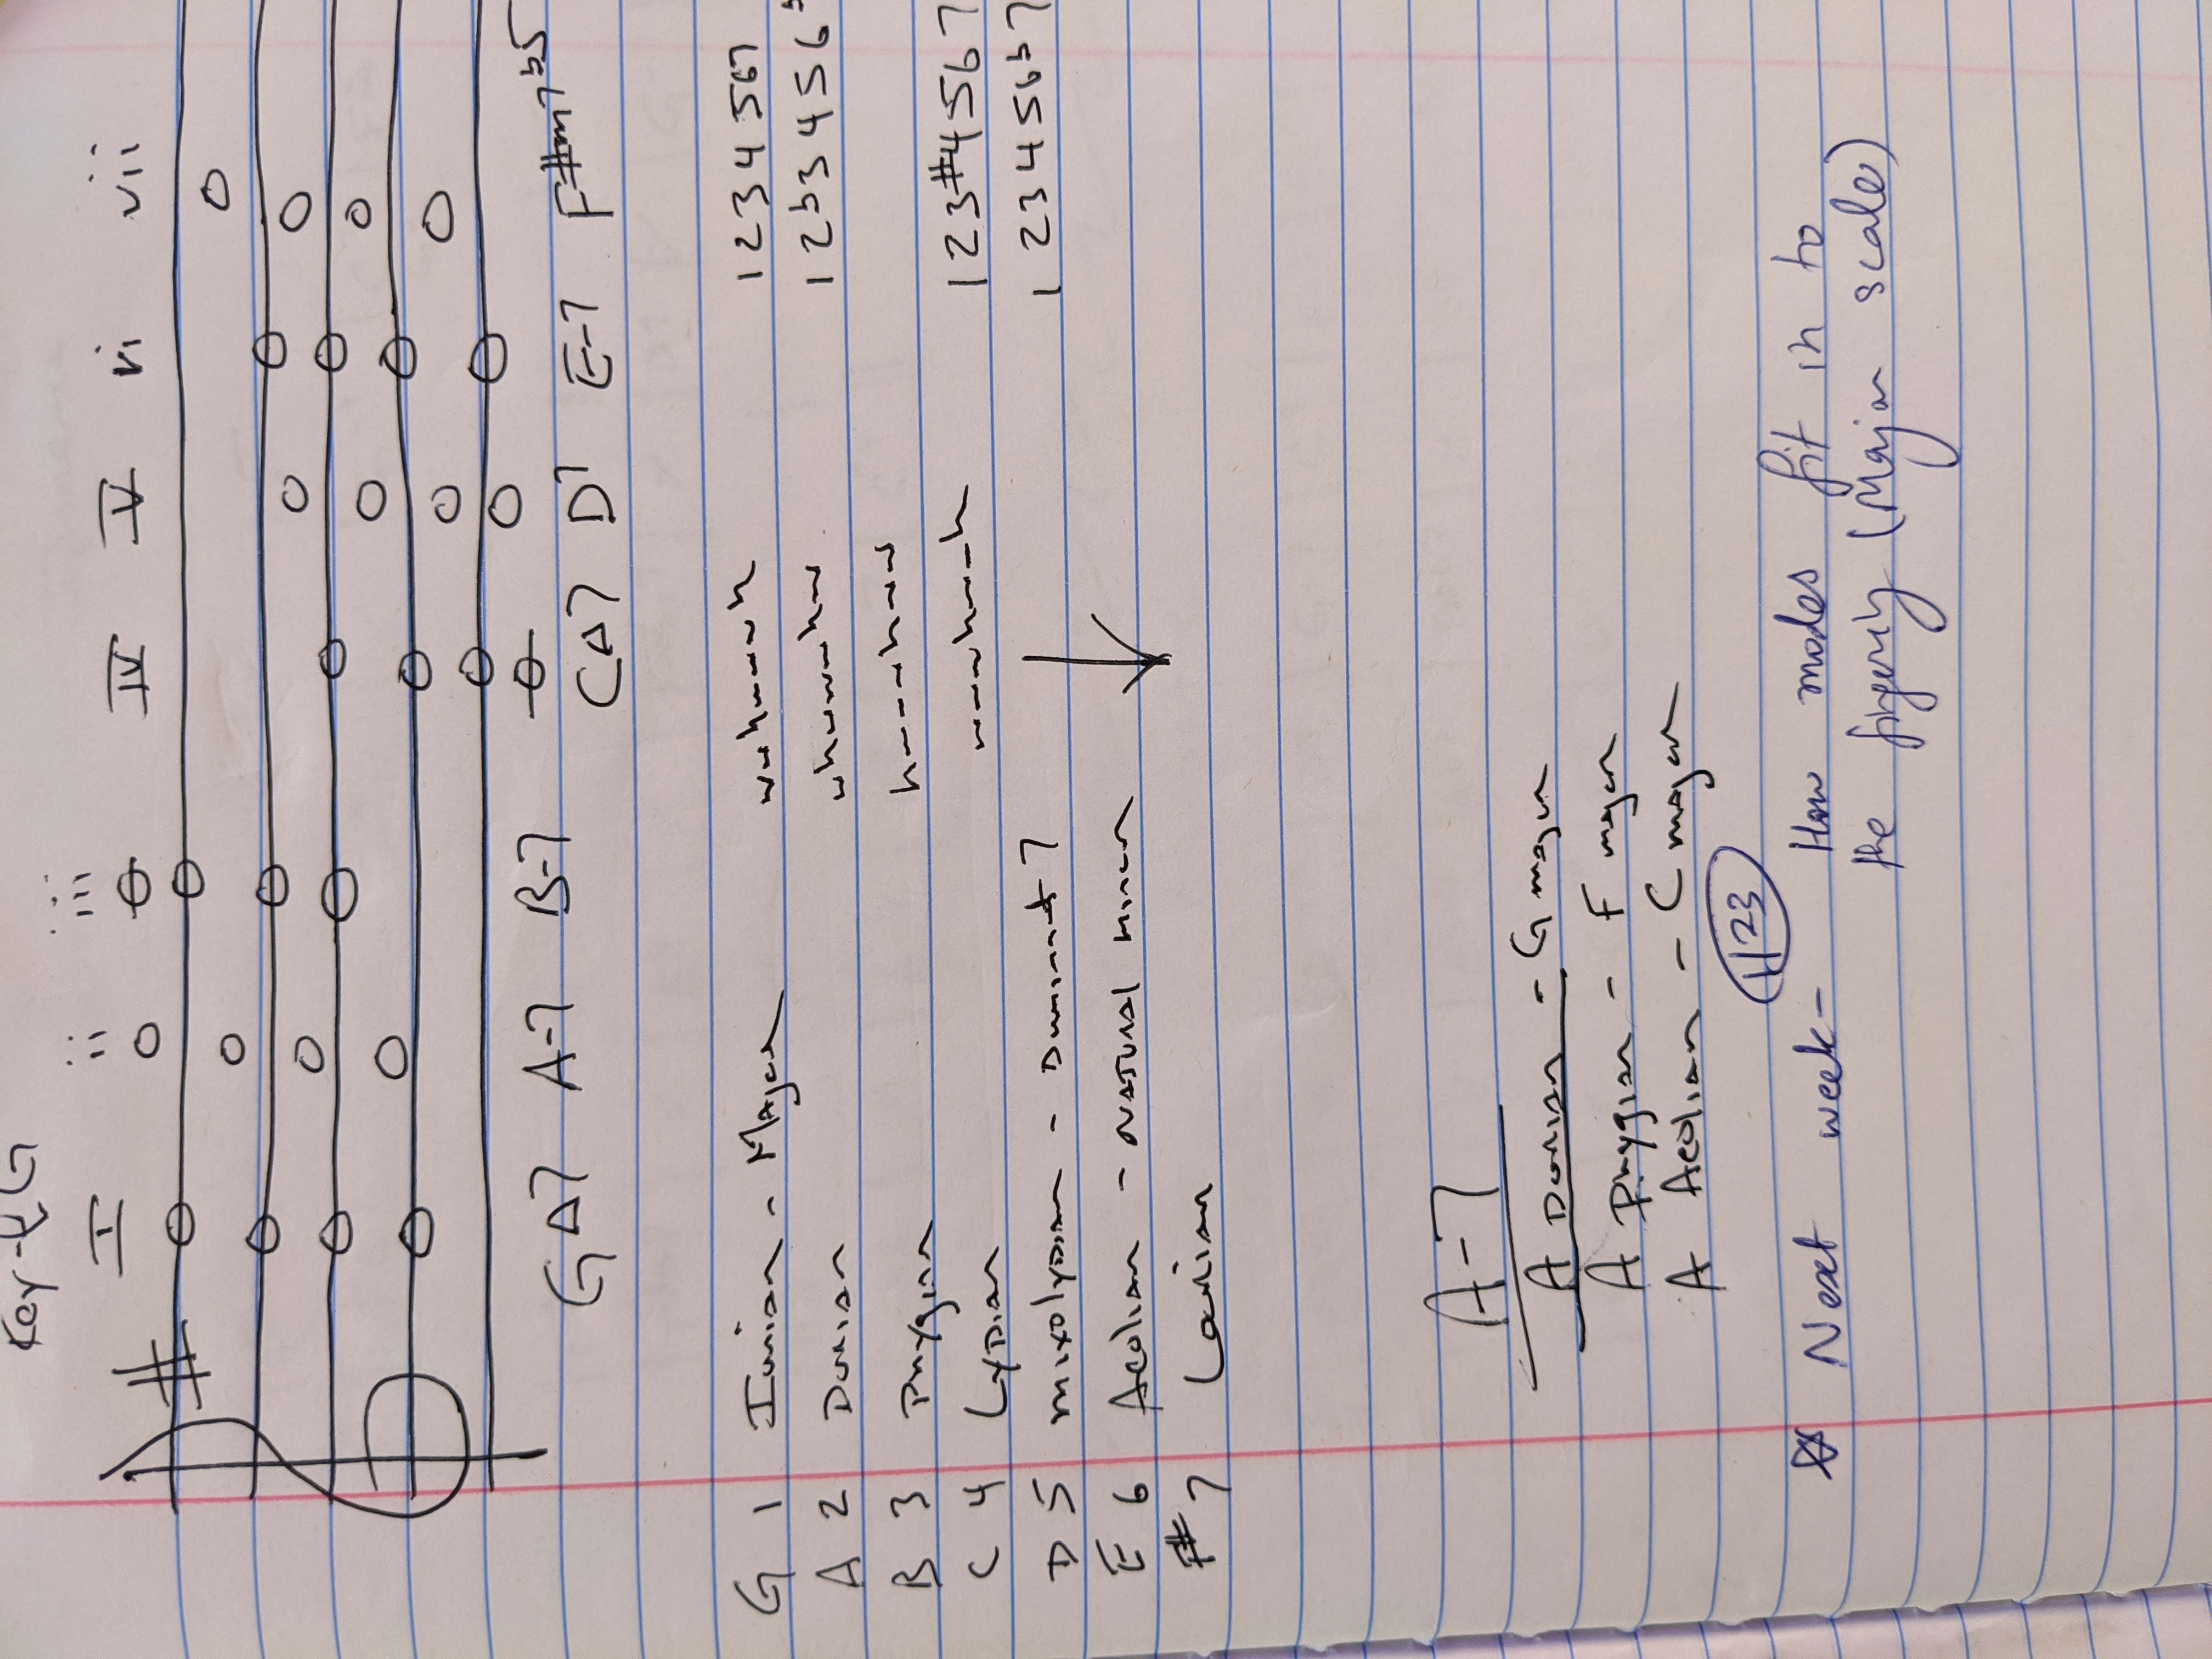 Key of G
I ii iii IV V vi vii
#
G∆7 A-7 B-7 C∆7 D7 E-7 F#m7b5
G 1 Ionian - Major wwhwwwh 1 2 3 4 5 6 7
A 2 Dorian whwwwhw 1 2 b3 4 5 6 b
B 3 Phrygian hwwwhww
C 4 Lydian wwwhwwh 1 2 3 #4 5 6 7
D 5 mixolydian - Dominant 7 1 2 3 4 5 6 b7
E 6 Aeolian - NATURAL minor
F# 7 Locrian
A-7
A Dorian - G major
A Phrygian - F major
A Aeolian - C major
1/23
Next week - How modes fit in to
the fingering (Major scale)